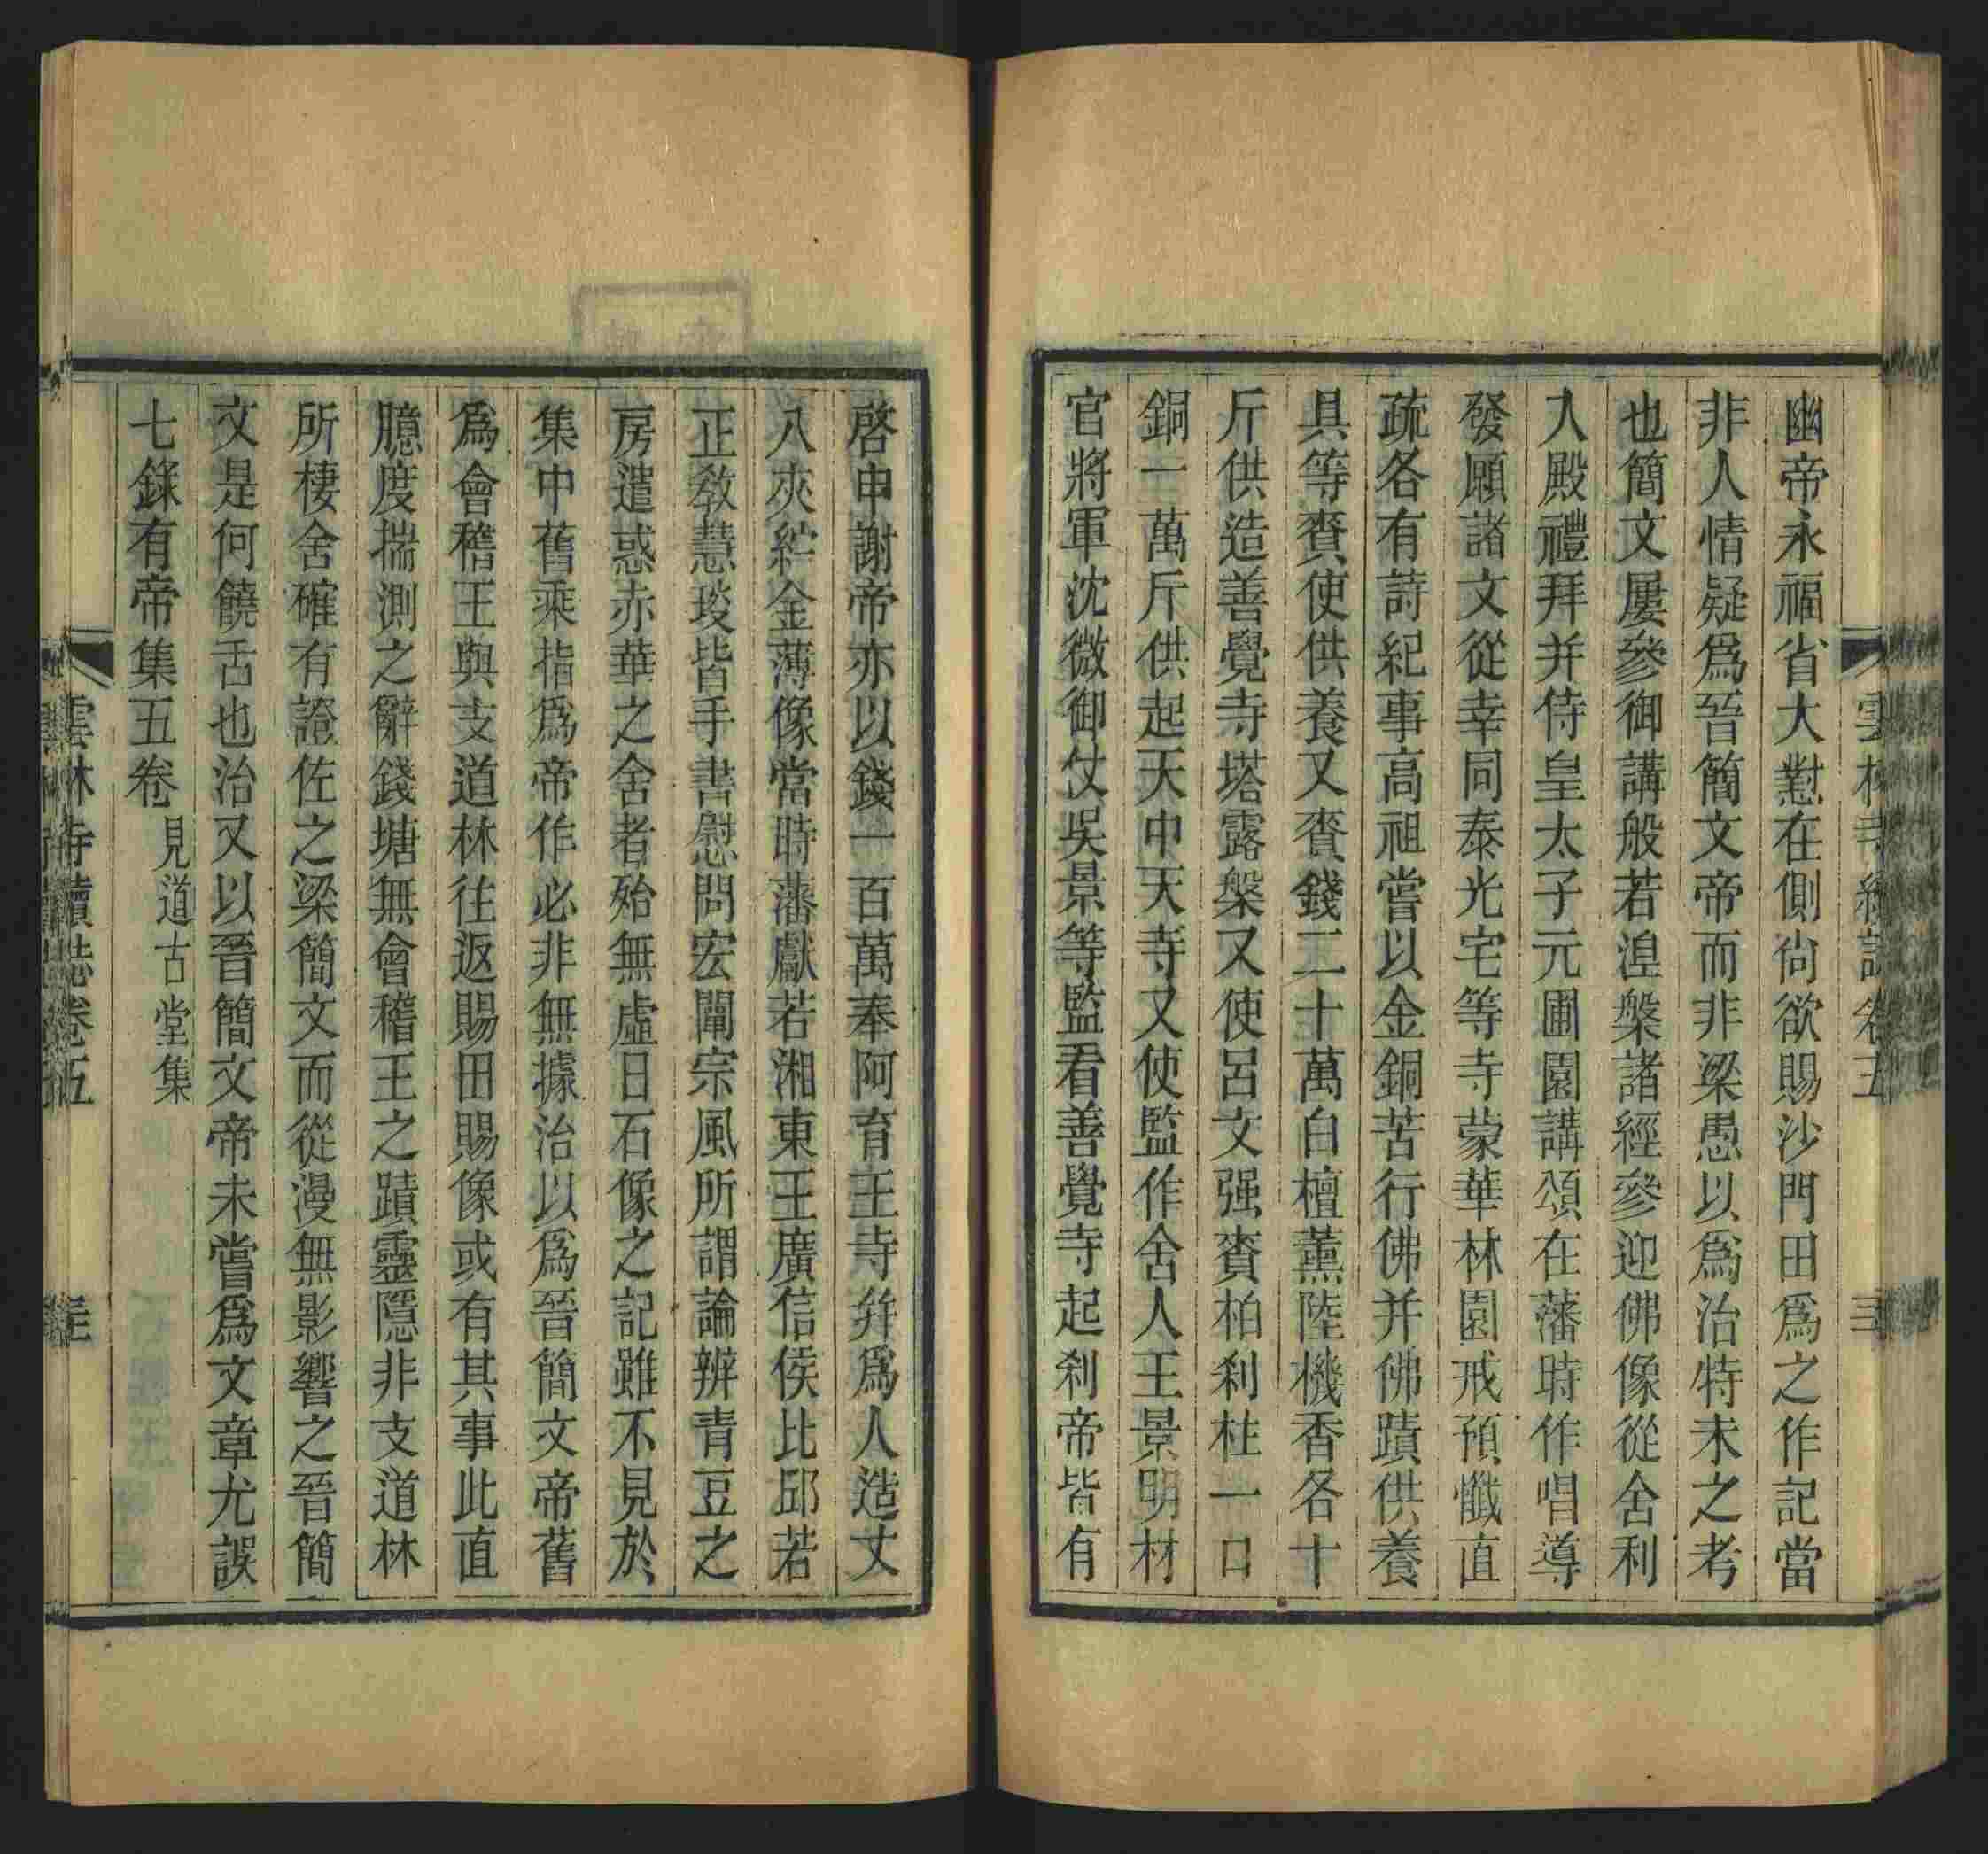 幽帝永福省大懟在側尙欲賜沙門田爲之作記當
非人情疑爲晉簡文帝而非梁愚以爲治特未之考
也簡文屢參御講般若湼槃諸經參迎佛像從舍利
入殿禮拜并侍皇太子元圃園講頌在藩時作唱導
發願諸文從幸同泰光宅等寺蒙華林園戒預懺直
疏各有詩紀事高祖嘗以金銅苦行佛并佛蹟供養
具等賚使供養又賚錢二十萬白檀薰陸機香各十
斤供造善覺寺塔露槃又使呂文强賚柏刹柱一口
銅一萬斤供起天中天寺又使監作舍人王景明材
官將軍沈微御仗吳景等監看善覺寺起刹帝皆有
啓申謝帝亦以錢一百萬奉阿育王寺幷爲人造丈
八夾紵金薄像當時藩獻若湘東王廣信侯比邱若
正敎慧琰皆手書慰問宏闡宗風所謂論辨青豆之
房遣惑赤華之舍者殆無虛日石像之記雖不見於
集中舊乘指爲帝作必非無據治以爲晉簡文帝舊
爲會稽王與支道林往返賜田賜像或有其事此直
臆度揣測之辭錢塘無會稽王之蹟靈隱非支道林
所棲舍確有證佐之梁簡文而從漫無影響之晉簡
文是何饒舌也治又以晉簡文帝未嘗爲文章尤誤
七錄有帝集五卷 見道古堂集
雲林寺續誌卷五